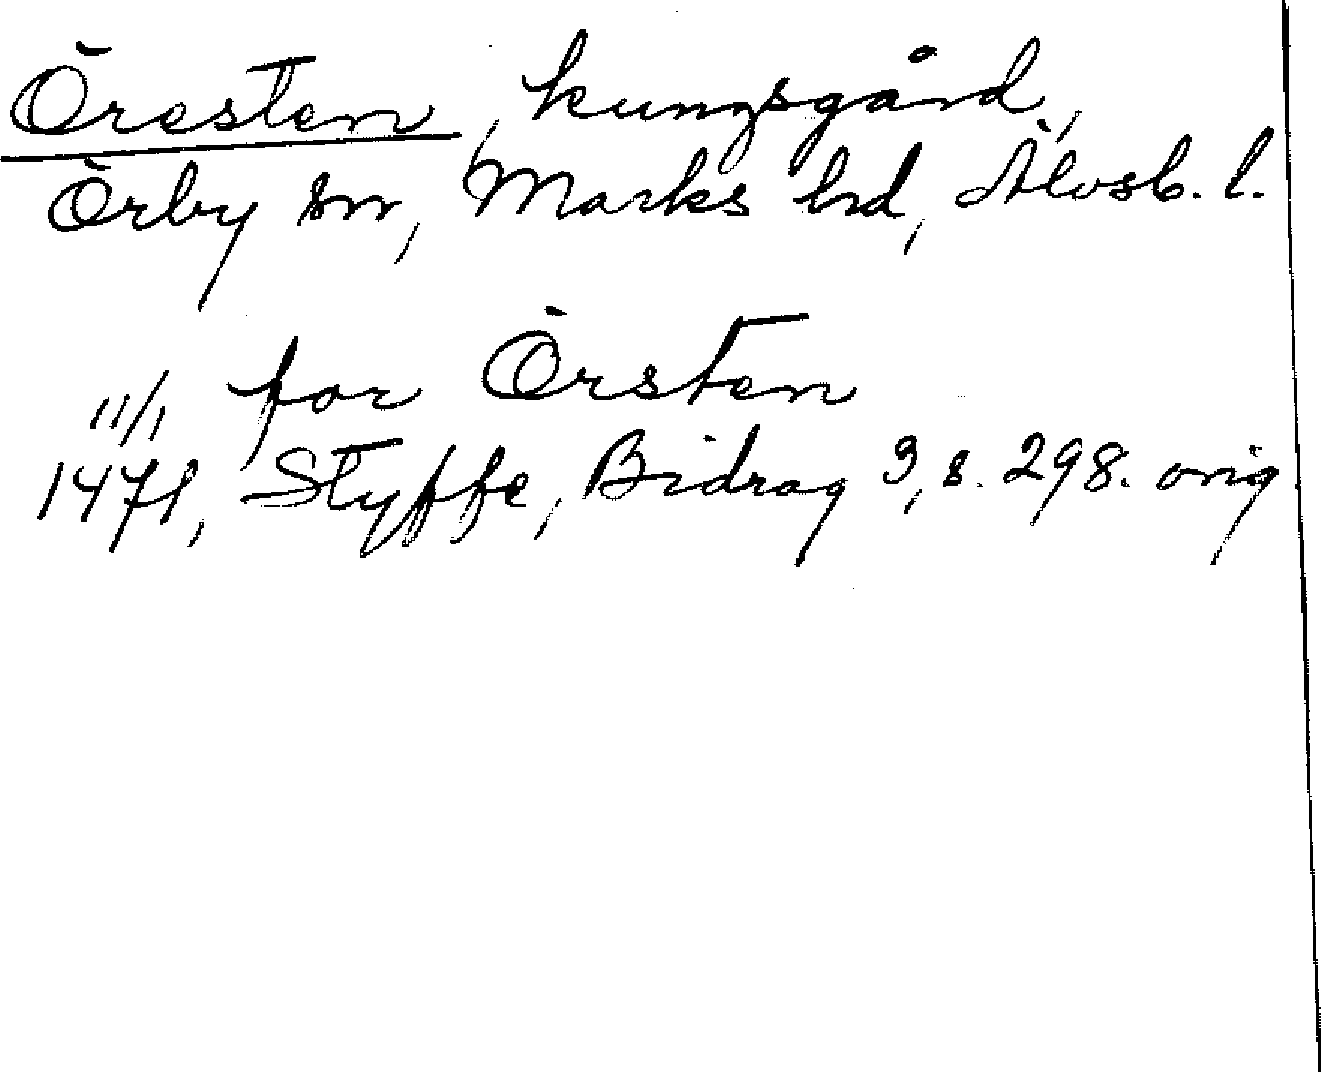 Öresten, kungsgård,
Örby sn, Marks hd, Älvsb. l.
for Örsten
11/1 1471, Styffe, Bidrag 3, s. 298. orig